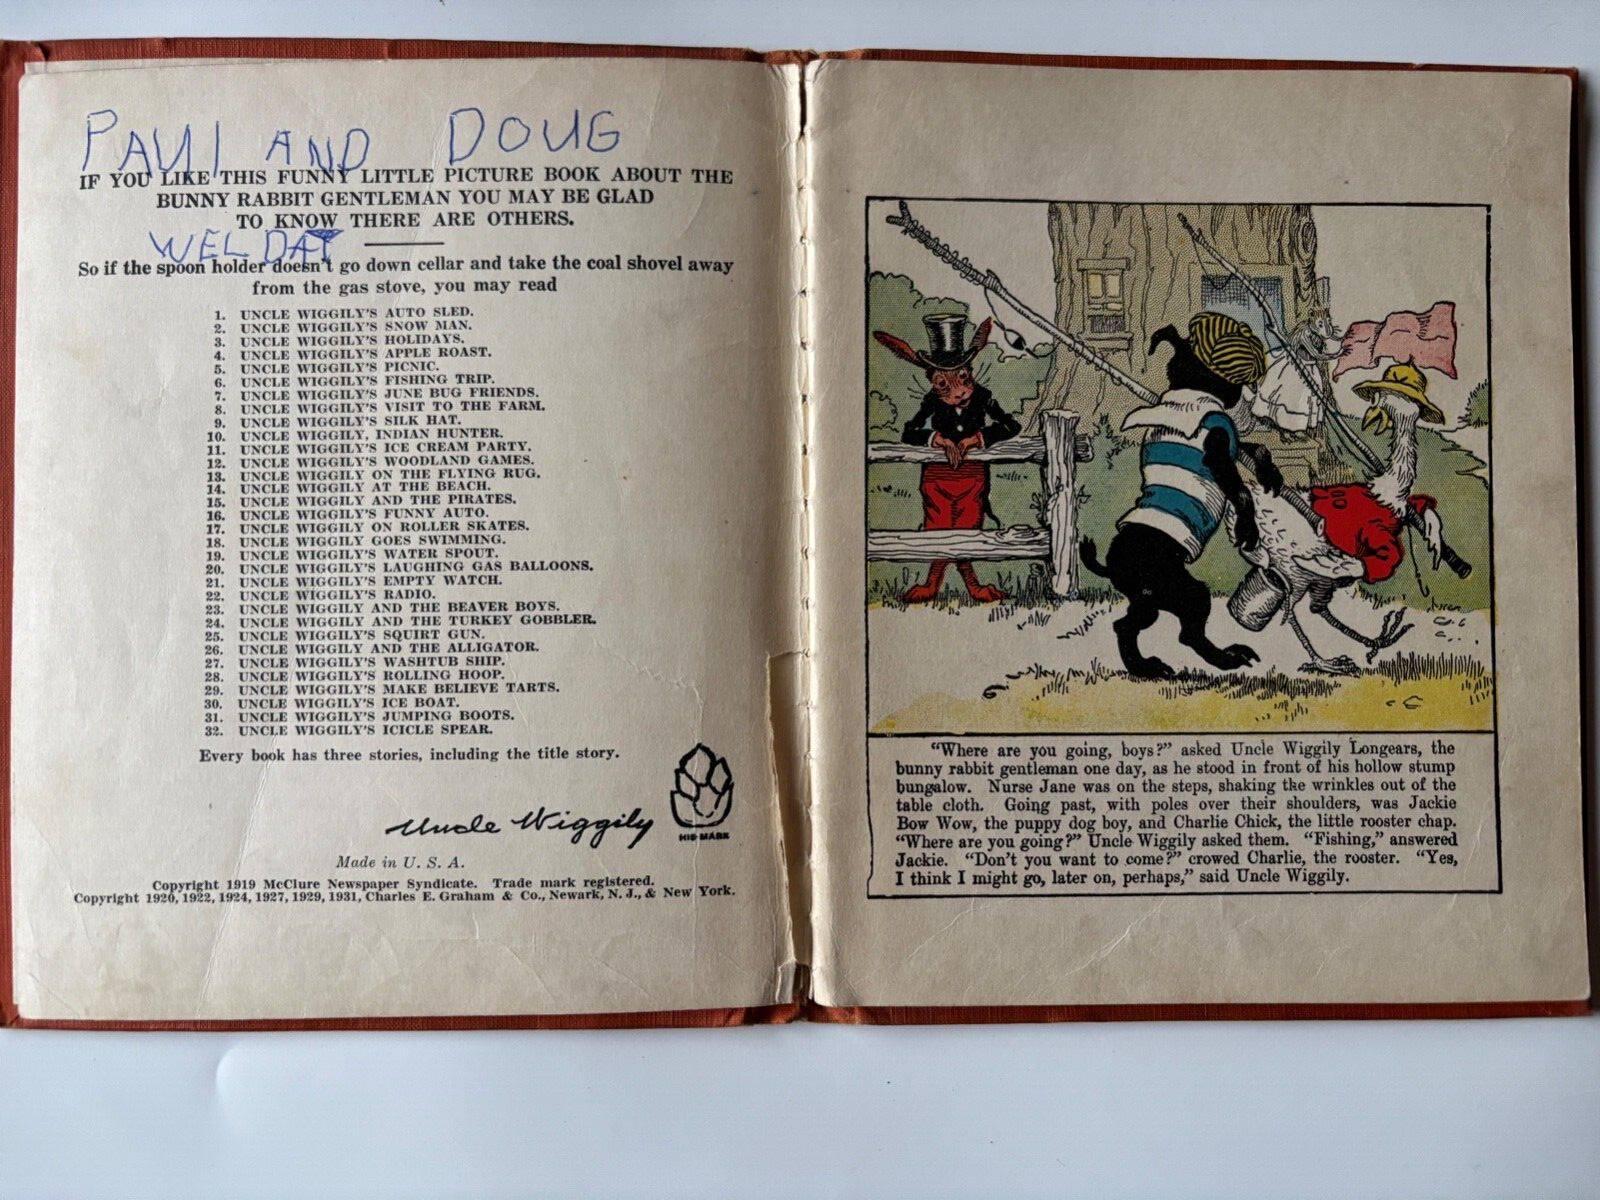 PAUl AND DOUG
IF YOU LIKE THIS FUNNY LITTLE PICTURE BOOK ABOUT THE
BUNNY RABBIT GENTLEMAN YOU MAY BE GLAD
TO KNOW THERE ARE OTHERS.
WELDAY
So if the spoon holder doesn't go down cellar and take the coal shovel away
from the gas stove, you may read
1. UNCLE WIGGILY'S AUTO SLED.
2. UNCLE WIGGILY'S SNOW MAN.
3. UNCLE WIGGILY'S HOLIDAYS.
4. UNCLE WIGGILY'S APPLE ROAST.
5. UNCLE WIGGILY'S PICNIC.
6. UNCLE WIGGILY'S FISHING TRIP.
7. UNCLE WIGGILY'S JUNE BUG FRIENDS.
8. UNCLE WIGGILY'S VISIT TO THE FARM.
9. UNCLE WIGGILY'S SILK HAT.
10. UNCLE WIGGILY, INDIAN HUNTER.
11. UNCLE WIGGILY'S ICE CREAM PARTY.
12. UNCLE WIGGILY'S WOODLAND GAMES.
13. UNCLE WIGGILY ON THE FLYING RUG.
14. UNCLE WIGGILY AT THE BEACH.
15. UNCLE WIGGILY AND THE PIRATES.
16. UNCLE WIGGILY'S FUNNY AUTO.
17. UNCLE WIGGILY ON ROLLER SKATES.
18. UNCLE WIGGILY GOES SWIMMING.
19. UNCLE WIGGILY'S WATER SPOUT.
20. UNCLE WIGGILY'S LAUGHING GAS BALLOONS.
21. UNCLE WIGGILY'S EMPTY WATCH.
22. UNCLE WIGGILY'S RADIO.
23. UNCLE WIGGILY AND THE BEAVER BOYS.
24. UNCLE WIGGILY AND THE TURKEY GOBBLER.
25. UNCLE WIGGILY'S SQUIRT GUN.
26. UNCLE WIGGILY AND THE ALLIGATOR.
27. UNCLE WIGGILY'S WASHTUB SHIP.
28. UNCLE WIGGILY'S ROLLING HOOP.
29. UNCLE WIGGILY'S MAKE BELIEVE TARTS.
30. UNCLE WIGGILY'S ICE BOAT.
31. UNCLE WIGGILY'S JUMPING BOOTS.
32. UNCLE WIGGILY'S ICICLE SPEAR.
Every book has three stories, including the title story.
Uncle Wiggily
HIS MARK
Made in U. S. A.
Copyright 1919 McClure Newspaper Syndicate. Trade mark registered.
Copyright 1920, 1922, 1924, 1927, 1929, 1931, Charles E. Graham & Co., Newark, N. J., & New York.
"Where are you going, boys?" asked Uncle Wiggily Longears, the
bunny rabbit gentleman one day, as he stood in front of his hollow stump
bungalow. Nurse Jane was on the steps, shaking the wrinkles out of the
table cloth. Going past, with poles over their shoulders, was Jackie
Bow Wow, the puppy dog boy, and Charlie Chick, the little rooster chap.
"Where are you going?" Uncle Wiggily asked them. "Fishing," answered
Jackie. "Don't you want to come?" crowed Charlie, the rooster. "Yes,
I think I might go, later on, perhaps," said Uncle Wiggily.